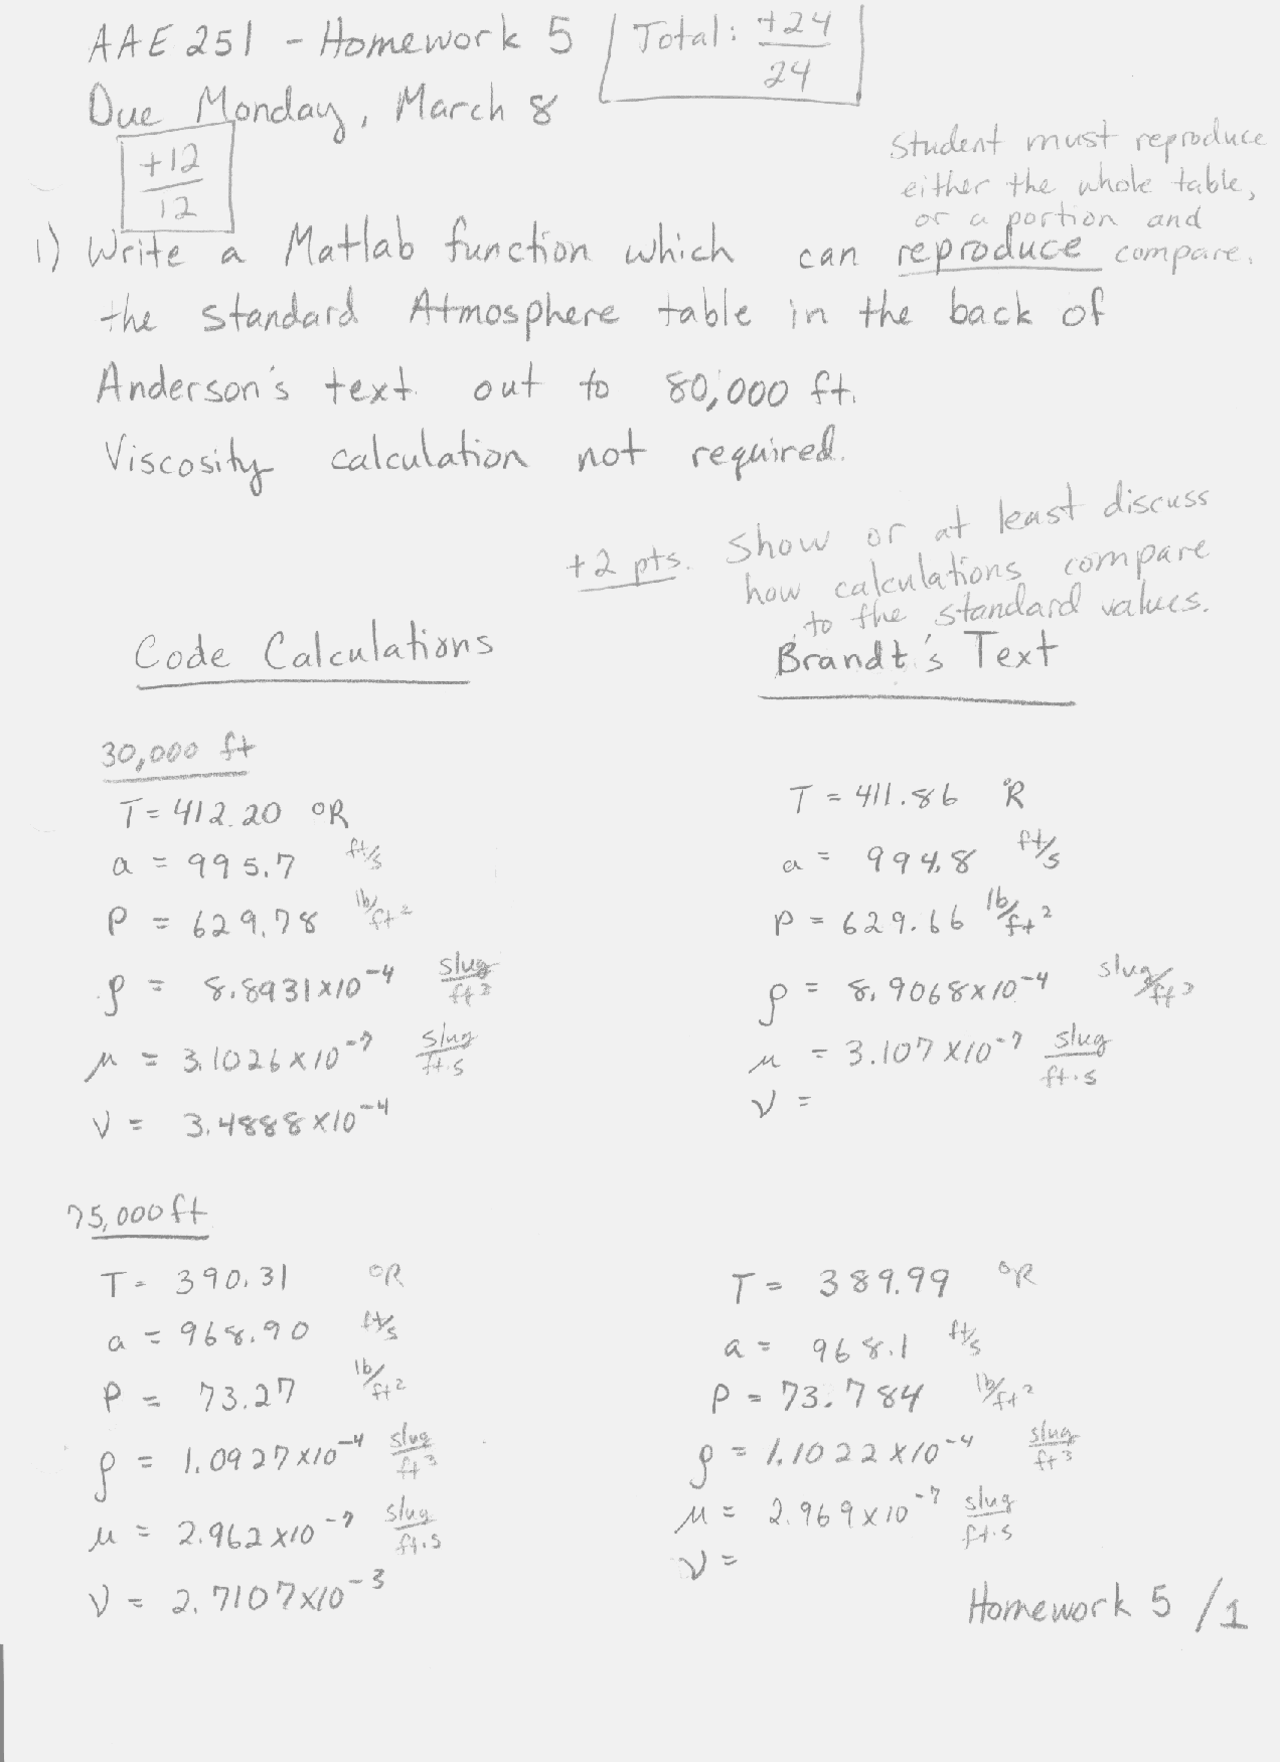 AAE 251 - Homework 5
Total: +24/24
Due Monday, March 8
+12/12
Student must reproduce
either the whole table,
or a portion and
compare.
1) Write a Matlab function which can reproduce
the standard Atmosphere table in the back of
Anderson's text out to 80,000 ft.
Viscosity calculation not required.
+2 pts. Show or at least discuss
how calculations compare
to the standard values.
Code Calculations
Brandt's Text
30,000 ft
T = 412.20 °R
a = 995.7 ft/s
P = 629.78 lb/ft²
ρ = 8.8931×10⁻⁴ slug/ft³
μ = 3.1026×10⁻⁷ slug/ft·s
ν = 3.4888×10⁻⁴
T = 411.86 °R
a = 994.8 ft/s
P = 629.66 lb/ft²
ρ = 8.9068×10⁻⁴ slug/ft³
μ = 3.107×10⁻⁷ slug/ft·s
ν =
75,000 ft
T = 390.31 °R
a = 968.90 ft/s
P = 73.27 lb/ft²
ρ = 1.0927×10⁻⁴ slug/ft³
μ = 2.962×10⁻⁷ slug/ft·s
ν = 2.7107×10⁻³
T = 389.99 °R
a = 968.1 ft/s
P = 73.784 lb/ft²
ρ = 1.1022×10⁻⁴ slug/ft³
μ = 2.969×10⁻⁷ slug/ft·s
ν =
Homework 5 /1